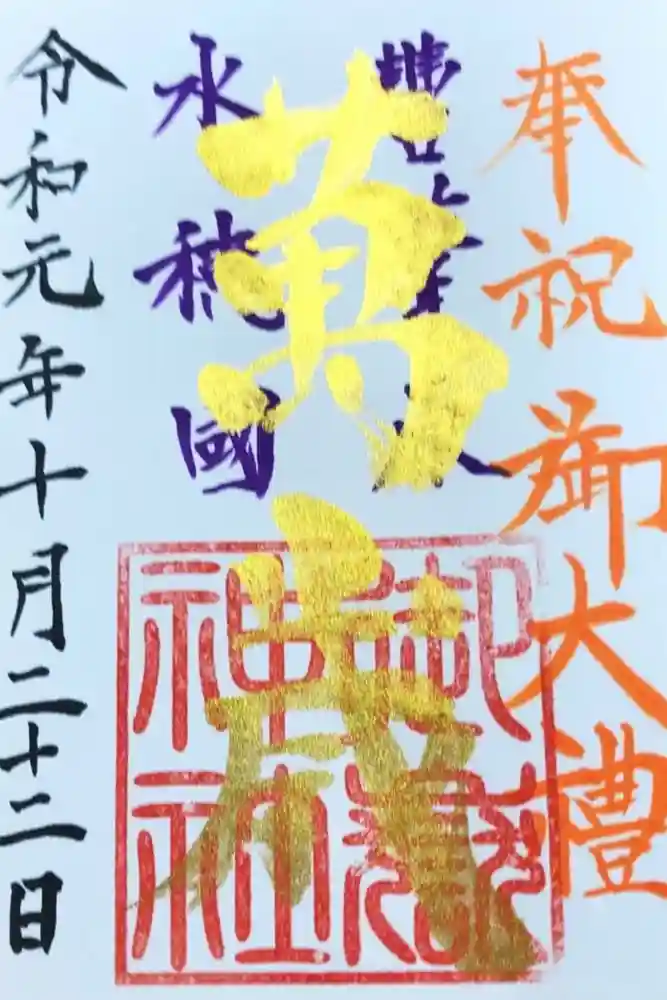 奉祝御大禮
豐
水穂國
萬歳
御嶽
神社
令和元年十月二十二日